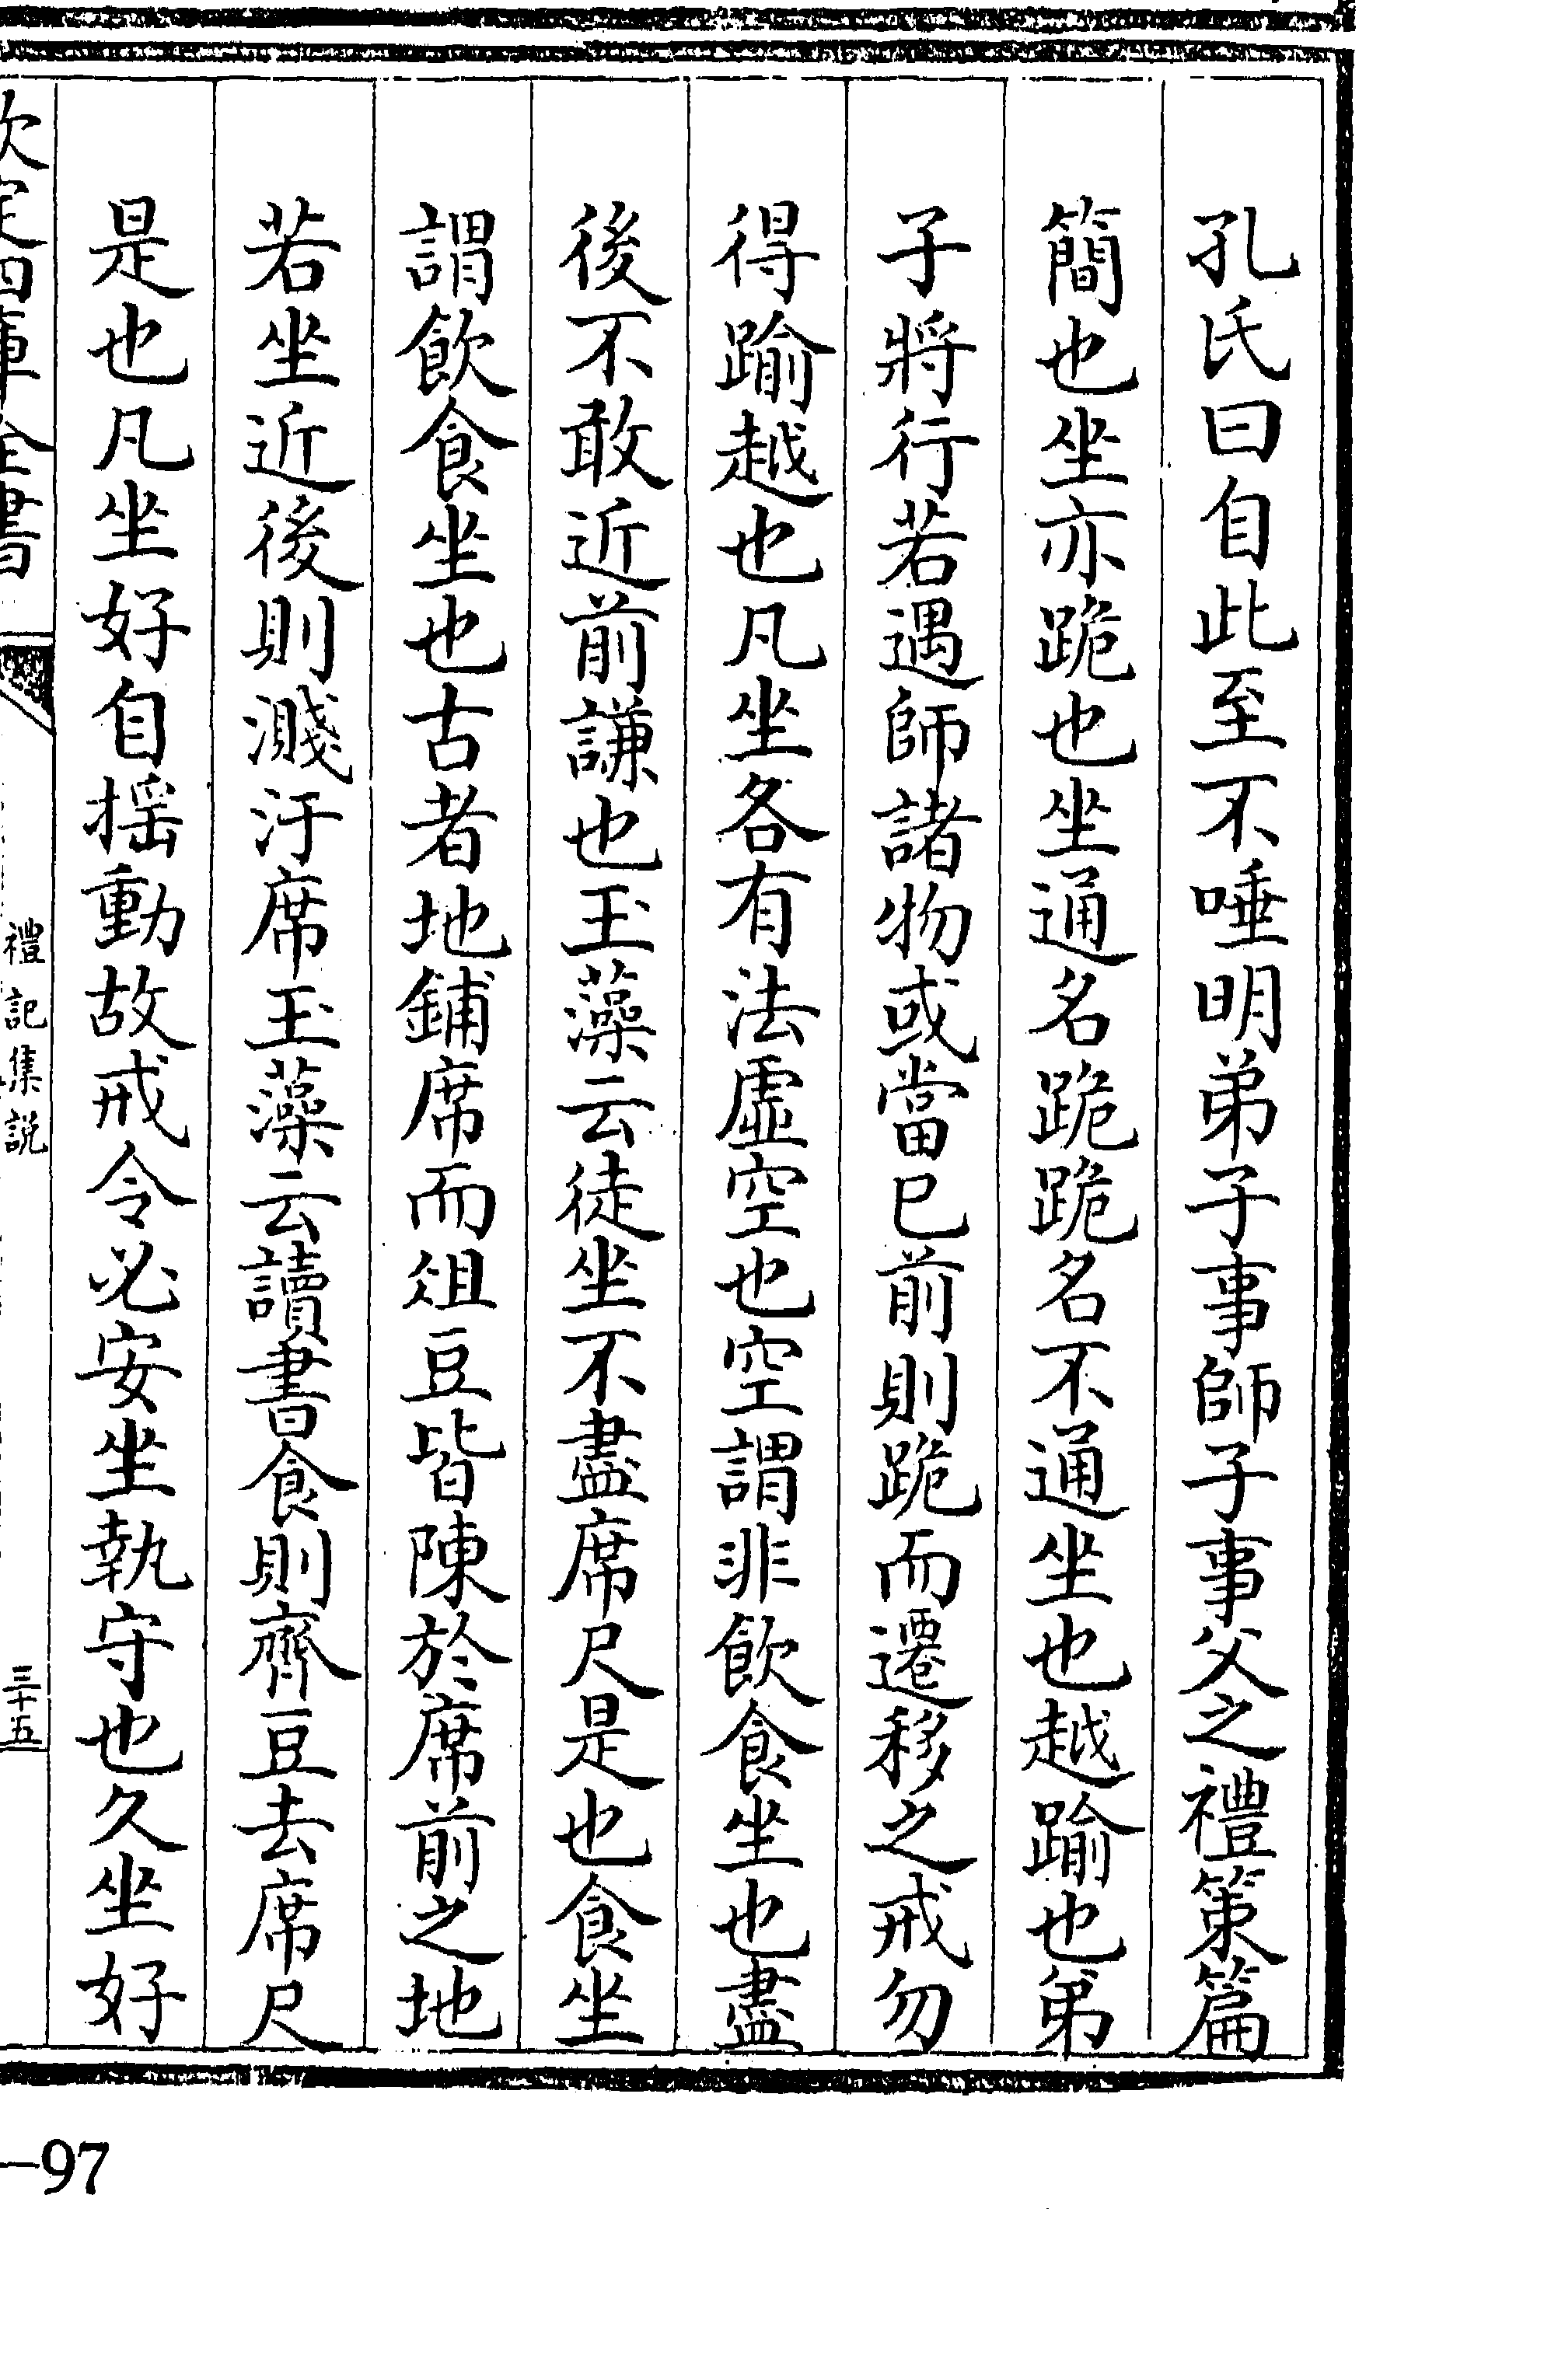 孔氏曰自此至不唾明弟子事師子事父之禮策篇
簡也坐亦跪也坐通名跪跪名不通坐也越踰也弟
子將行若遇師諸物或當已前則跪而遷移之戒勿
得踰越也凡坐各有法虛空也空謂非飲食坐也盡
後不敢近前謙也玉藻云徒坐不盡席尺是也食坐
謂飲食坐也古者地鋪席而俎豆皆陳於席前之地
若坐近後則濺汙席玉藻云讀書食則齊豆去席尺
是也凡坐好自揺動故戒令必安坐執守也久坐好
欽定四庫全書
禮記集説
三十五
-97